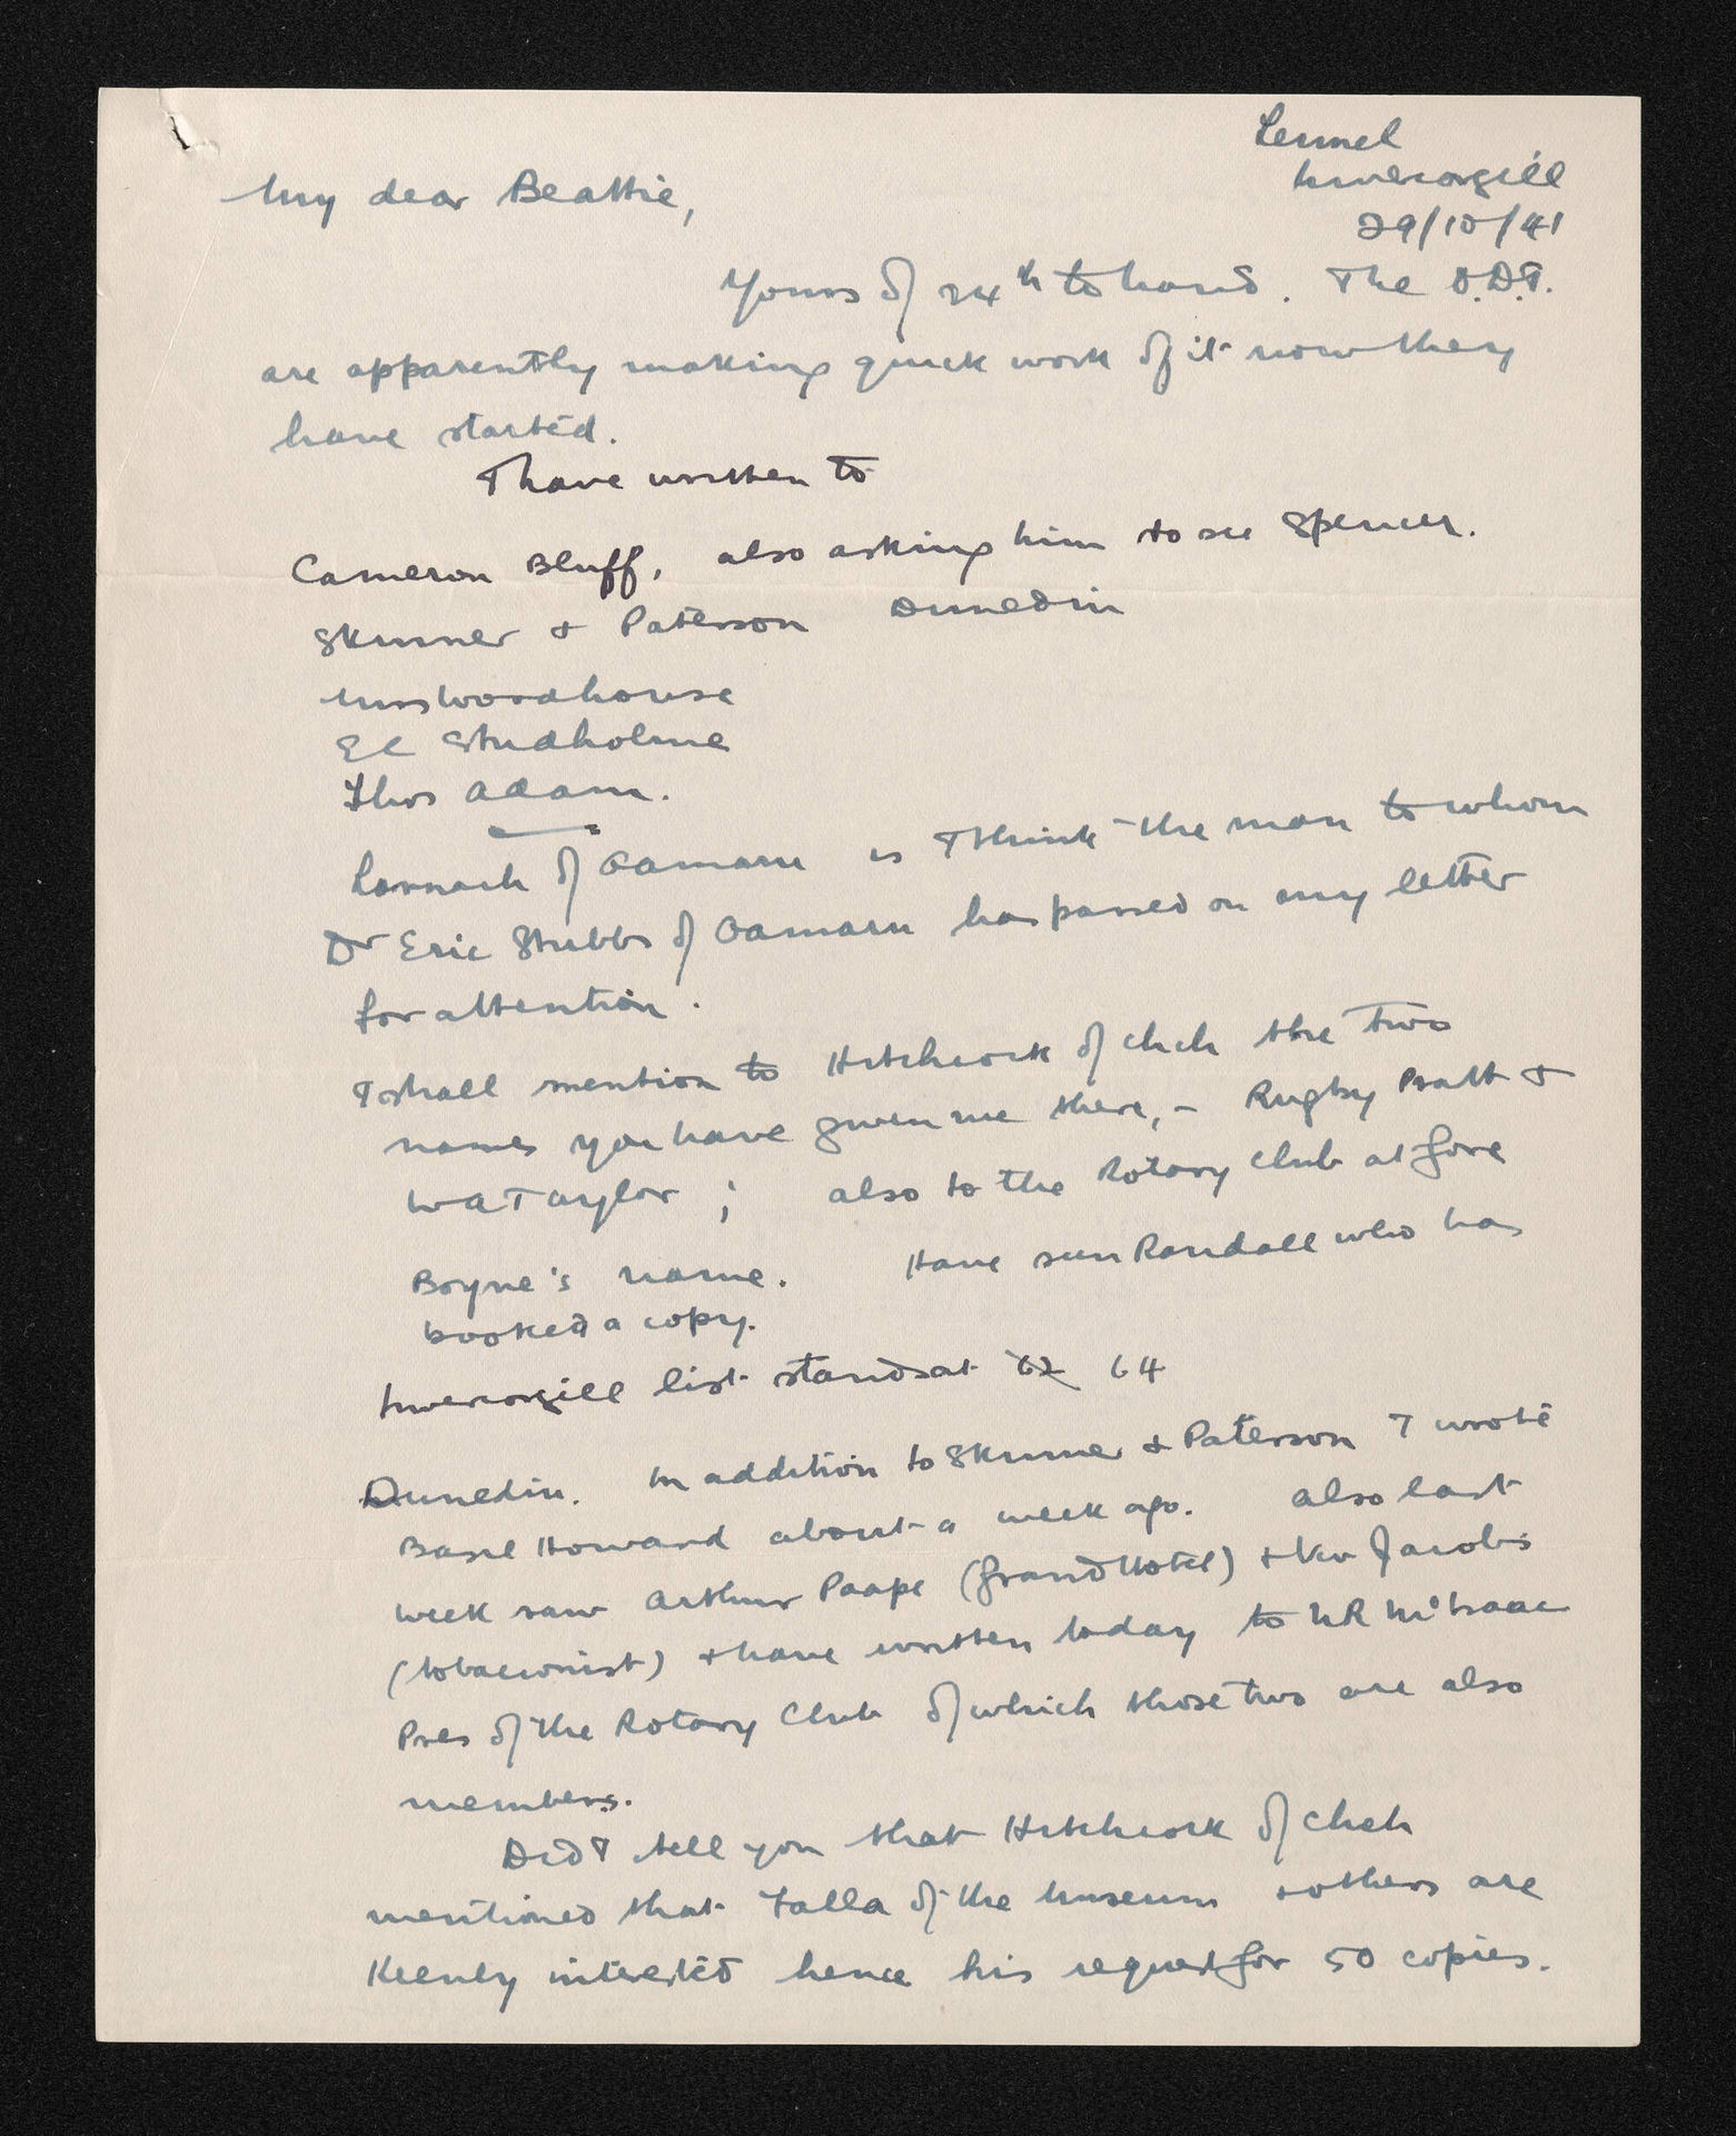 Lennel
Invercargill
29/10/41
My dear Beattie,
Yours of 24th to hand. The O.D.T.
are apparently making quick work of it now they
have started.
I have written to
Cameron Bluff, also asking him to see Spencer.
Skinner & Paterson Dunedin
Miss Woodhouse
EC Studholme
Thos Adam.
Larnach of Oamaru is I think the man to whom
Dr Eric Stubbs of Oamaru has passed on my letter
for attention.
I shall mention to Hitchcock of Chch the two
names you have given me there, - Rugby Pratt &
WA Taylor ; also to the Rotary Club at Gore
Boyne's name. Have seen Randall who has
booked a copy.
Invercargill list stands at 62 64
Dunedin. In addition to Skinner & Paterson I wrote
Basil Howard about a week ago. Also last
week saw Arthur Paape (Grand Hotel) & Viv Jacobs
(tobacconist) & have written today to NR McIsaac
Pres of the Rotary Club of which those two are also
members.
Did I tell you that Hitchcock of Chch
mentioned that Falla of the Museum & others are
keenly interested hence his request for 50 copies.